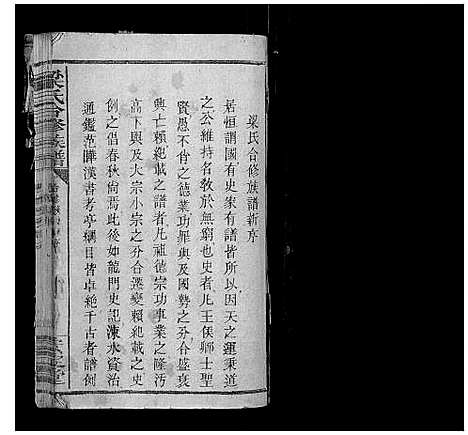 梁氏合修族譜新序
居恒謂國有史家有譜皆所以因天之運秉道
之公維持名教於無窮也史者凡王侯卿士聖
賢愚不肖之德業功罪與及國勢之分合盛衰
興亡賴紀載之譜者凡祖德宗功事業之隆汚
高下與及大宗小宗之分合遷變賴紀載之史
例之倡春秋尚焉此後如龍門史記涑水資治
通鑑范曄漢書考亭綱目皆卓絶千古者譜例
梁氏合修族譜